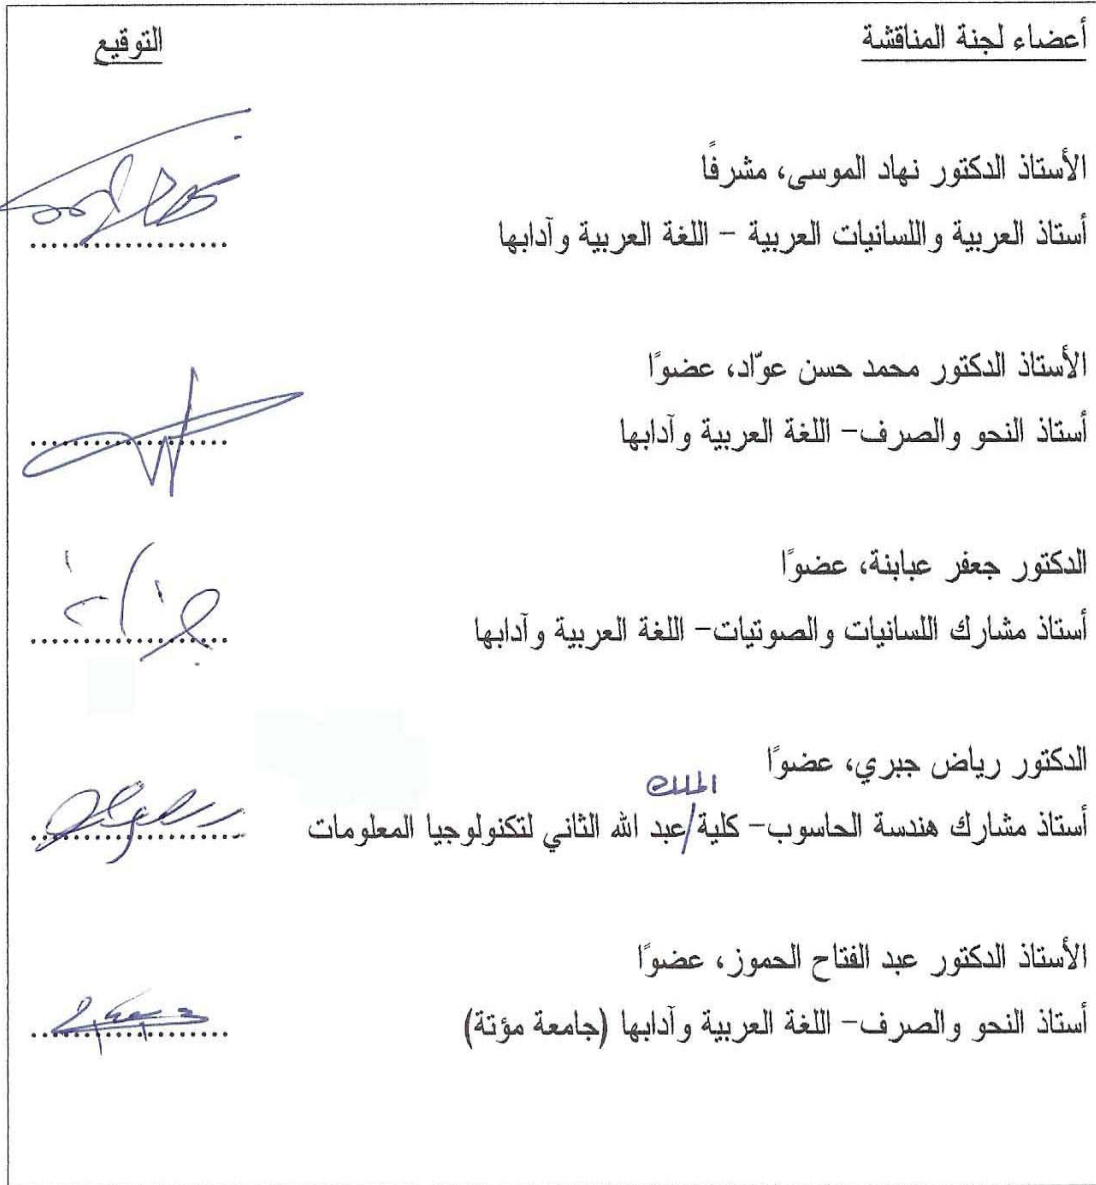 أعضاء لجنة المناقشة التوقيع
الأستاذ الدكتور نهاد الموسى، مشرفًا
أستاذ العربية واللسانيات العربية – اللغة العربية وآدابها ..................
الأستاذ الدكتور محمد حسن عوّاد، عضوًا
أستاذ النحو والصرف– اللغة العربية وآدابها ..................
الدكتور جعفر عبابنة، عضوًا
أستاذ مشارك اللسانيات والصوتيات– اللغة العربية وآدابها ..................
الدكتور رياض جبري، عضوًا
الملك
أستاذ مشارك هندسة الحاسوب– كلية/عبد الله الثاني لتكنولوجيا المعلومات ..................
الأستاذ الدكتور عبد الفتاح الحموز، عضوًا
أستاذ النحو والصرف– اللغة العربية وآدابها (جامعة مؤتة) ..................